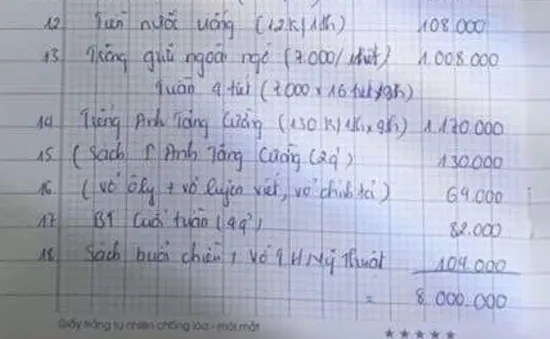 12 Tiền nước uống (12k/1th) 108.000
13 Trông giữ ngoài ngỏ (7.000/1tiết) 1.008.000
Tuần 4 tiết (7000 x 16 tiết/9th)
14 Tiếng Anh Tăng Cường (130k/1th x 9th) 1.170.000
15 (Sách T Anh Tăng Cường (2q) 130.000
16 (vở ôly + vở luyện viết, vở chính tả) 64.000
17 BT Cuối tuần (4q) 82.000
18 Sách buổi chiều, vở TH Mỹ Thuật 104.000
= 8.000.000
Giấy trắng tự nhiên chống lóa - mỏi mắt